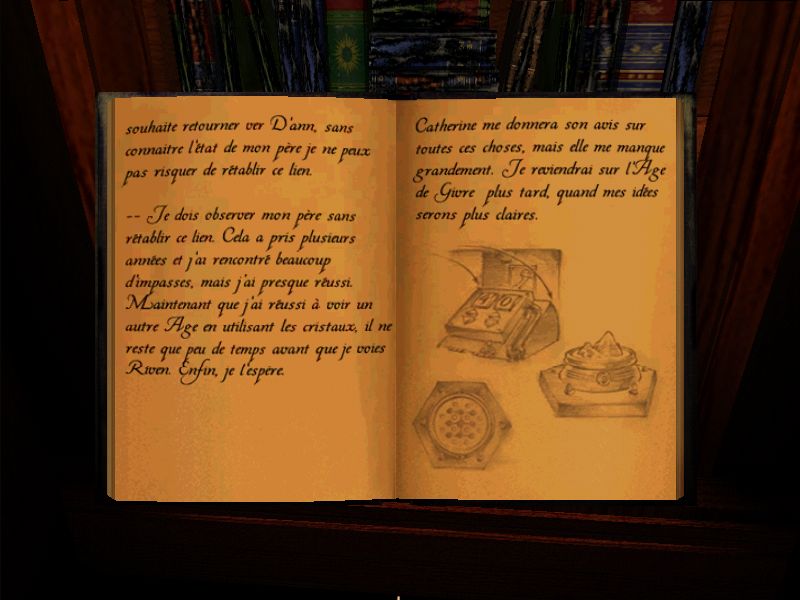 souhaite retourner ver D'ann, sans
connaitre l'état de mon père je ne peux
pas risquer de rétablir ce lien.
-- Je dois observer mon père sans
rétablir ce lien. Cela a pris plusieurs
années et j'ai rencontré beaucoup
d'impasses, mais j'ai presque réussi.
Maintenant que j'ai réussi à voir un
autre Age en utilisant les cristaux, il ne
reste que peu de temps avant que je voies
Riven. Enfin, je l'espère.
Catherine me donnera son avis sur
toutes ces choses, mais elle me manque
grandement. Je reviendrai sur l'Age
de Givre plus tard, quand mes idées
serons plus claires.